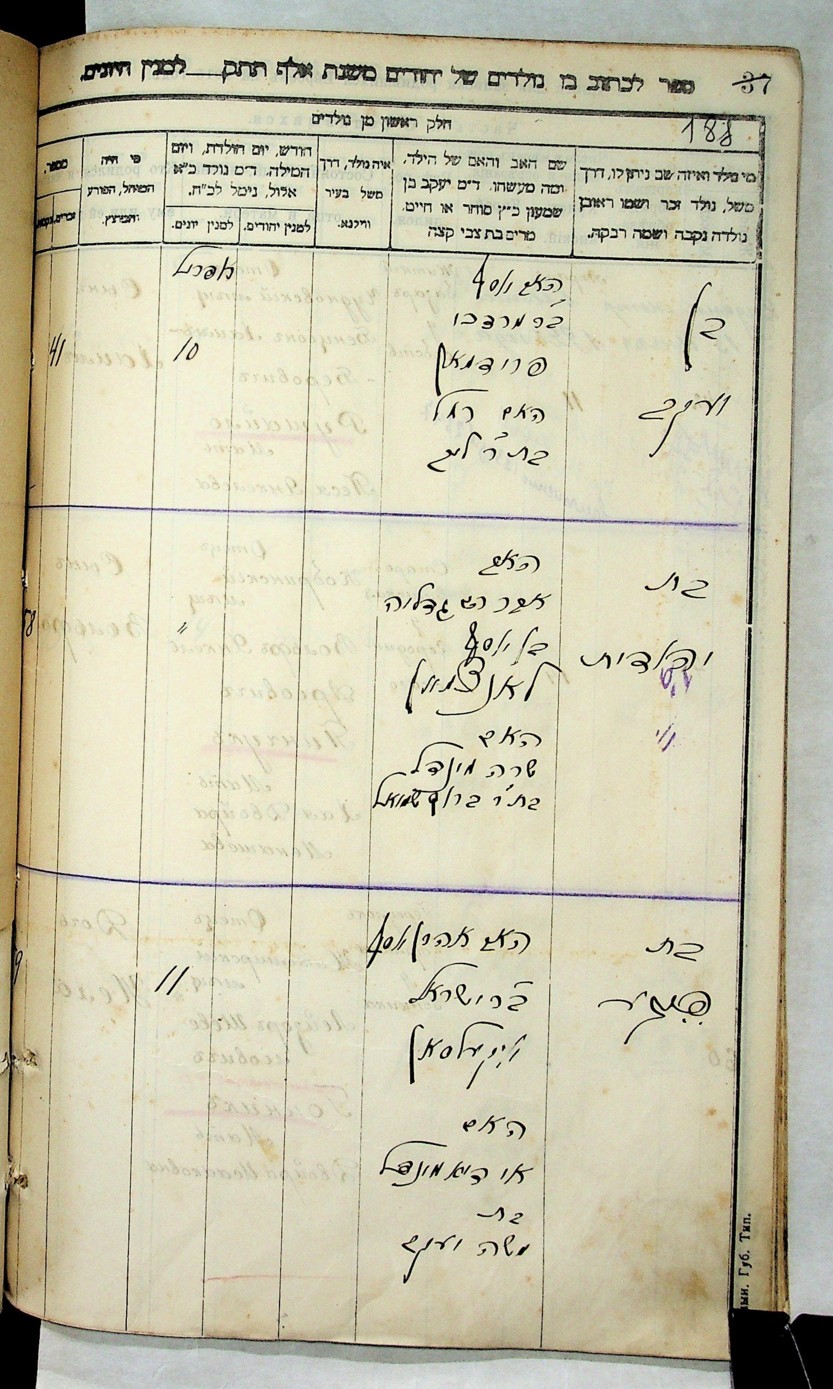 37
ספר לכתוב בו נולדים של יהודים משנת אלף תתק___ למנין היונים.
188
חלק ראשון מן נולדים
מי נולד ואיזה שם ניתן לו, דרך
משל, נולד זכר ושמו ראובן
נולדה נקבה ושמה רבקה.
שם האב והאם של הילד,
ומה מעשהו. ד״מ יעקב בן
שמעון כ״ץ סוחר או חייט.
מרים בת צבי קצה
איה נולד, דרך
משל בעיר
ווילנא.
חודש, יום הולדת, ויום
המילה. ד״מ נולד כ״א
אלול, נימל לכ״ח.
למנין יהודים.
למנין יונים.
מי היה
המוהל, הפורע
והמוצץ.
מספר.
זכרים.
בן
יעקב
האב יוסף
ב״ר מרדכי
פרידמאן
האם רחל
בת ר׳ ליב
אפריל
10
41
בת
יהודית
האב
אשר הש גדליה
בן יוסף
לאנצמאן
האם
שרה מינדל
בת ר׳ ברוך שמואל
"
בת
האב אהרן יוסף
ב״ר ישראל
האם
מינדל
בת
משה יעקב
11
9
Губ. Тип.